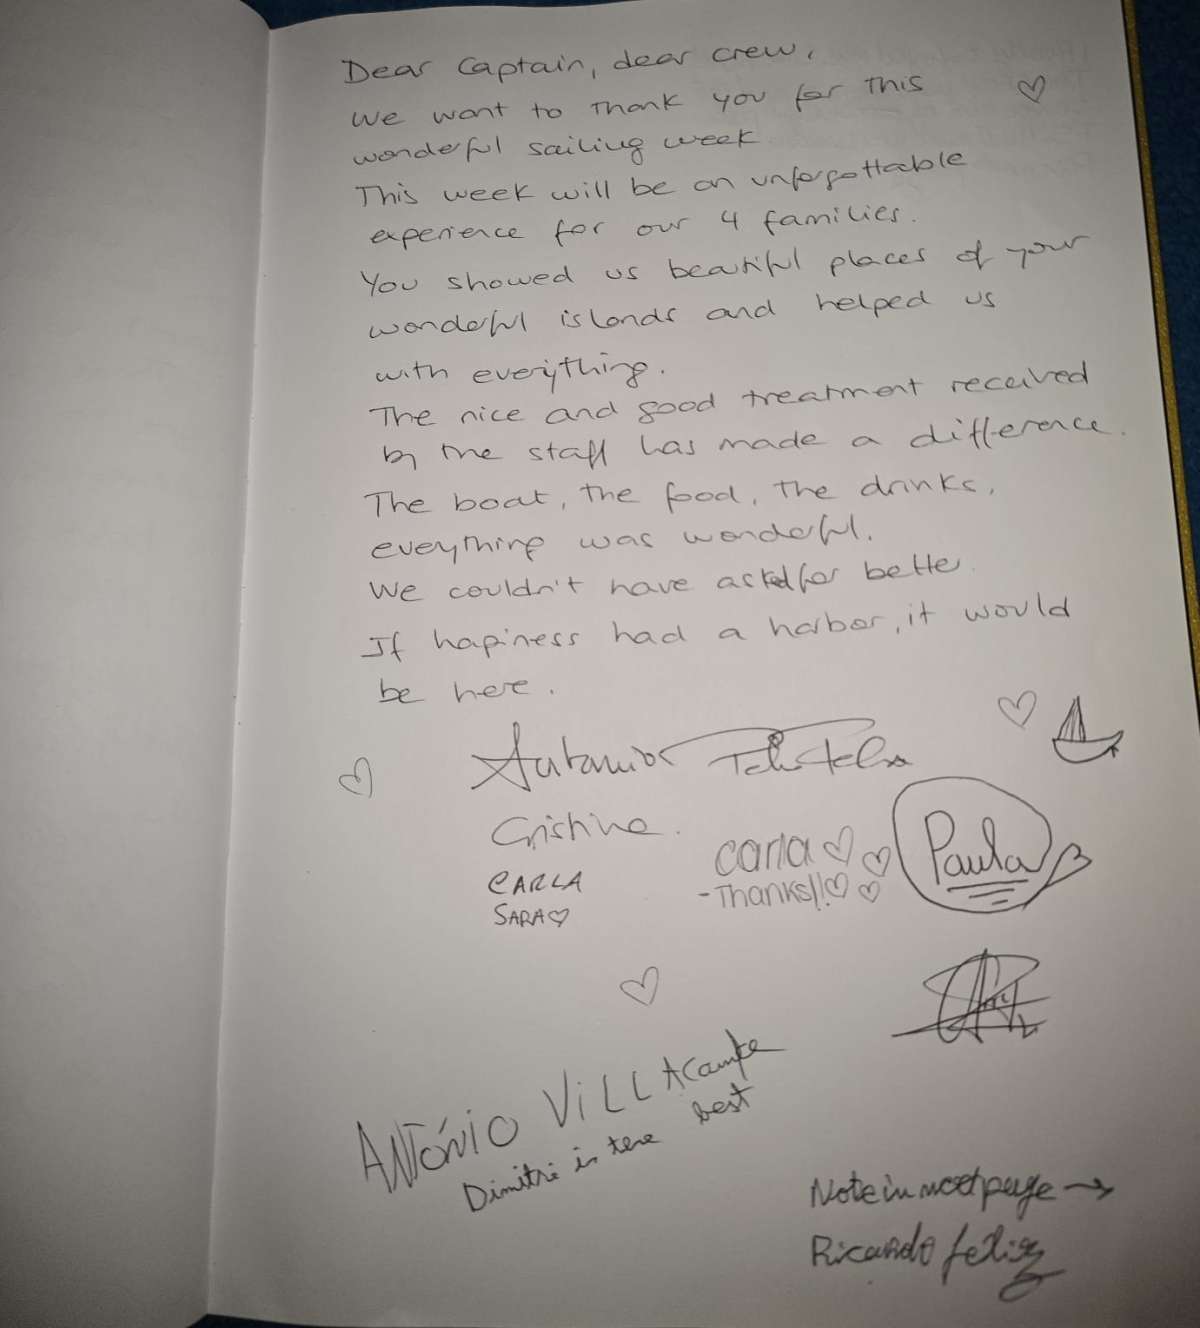 Dear Captain, dear crew,
We want to thank you for this
wonderful sailing week
This week will be an unforgottable
experience for our 4 families.
You showed us beautiful places of your
wonderful islands and helped us
with everything.
The nice and good treatment received
by the staff has made a difference.
The boat, the food, the drinks,
everything was wonderful.
We couldn't have asked for better
If hapiness had a harbor, it would
be here.
Cristina.
CARLA
SARA
Carla
- Thanks!!
Paula
ANTÓNIO VILLAcampa
Dimitri is tene best
Note in next page →
Ricardo